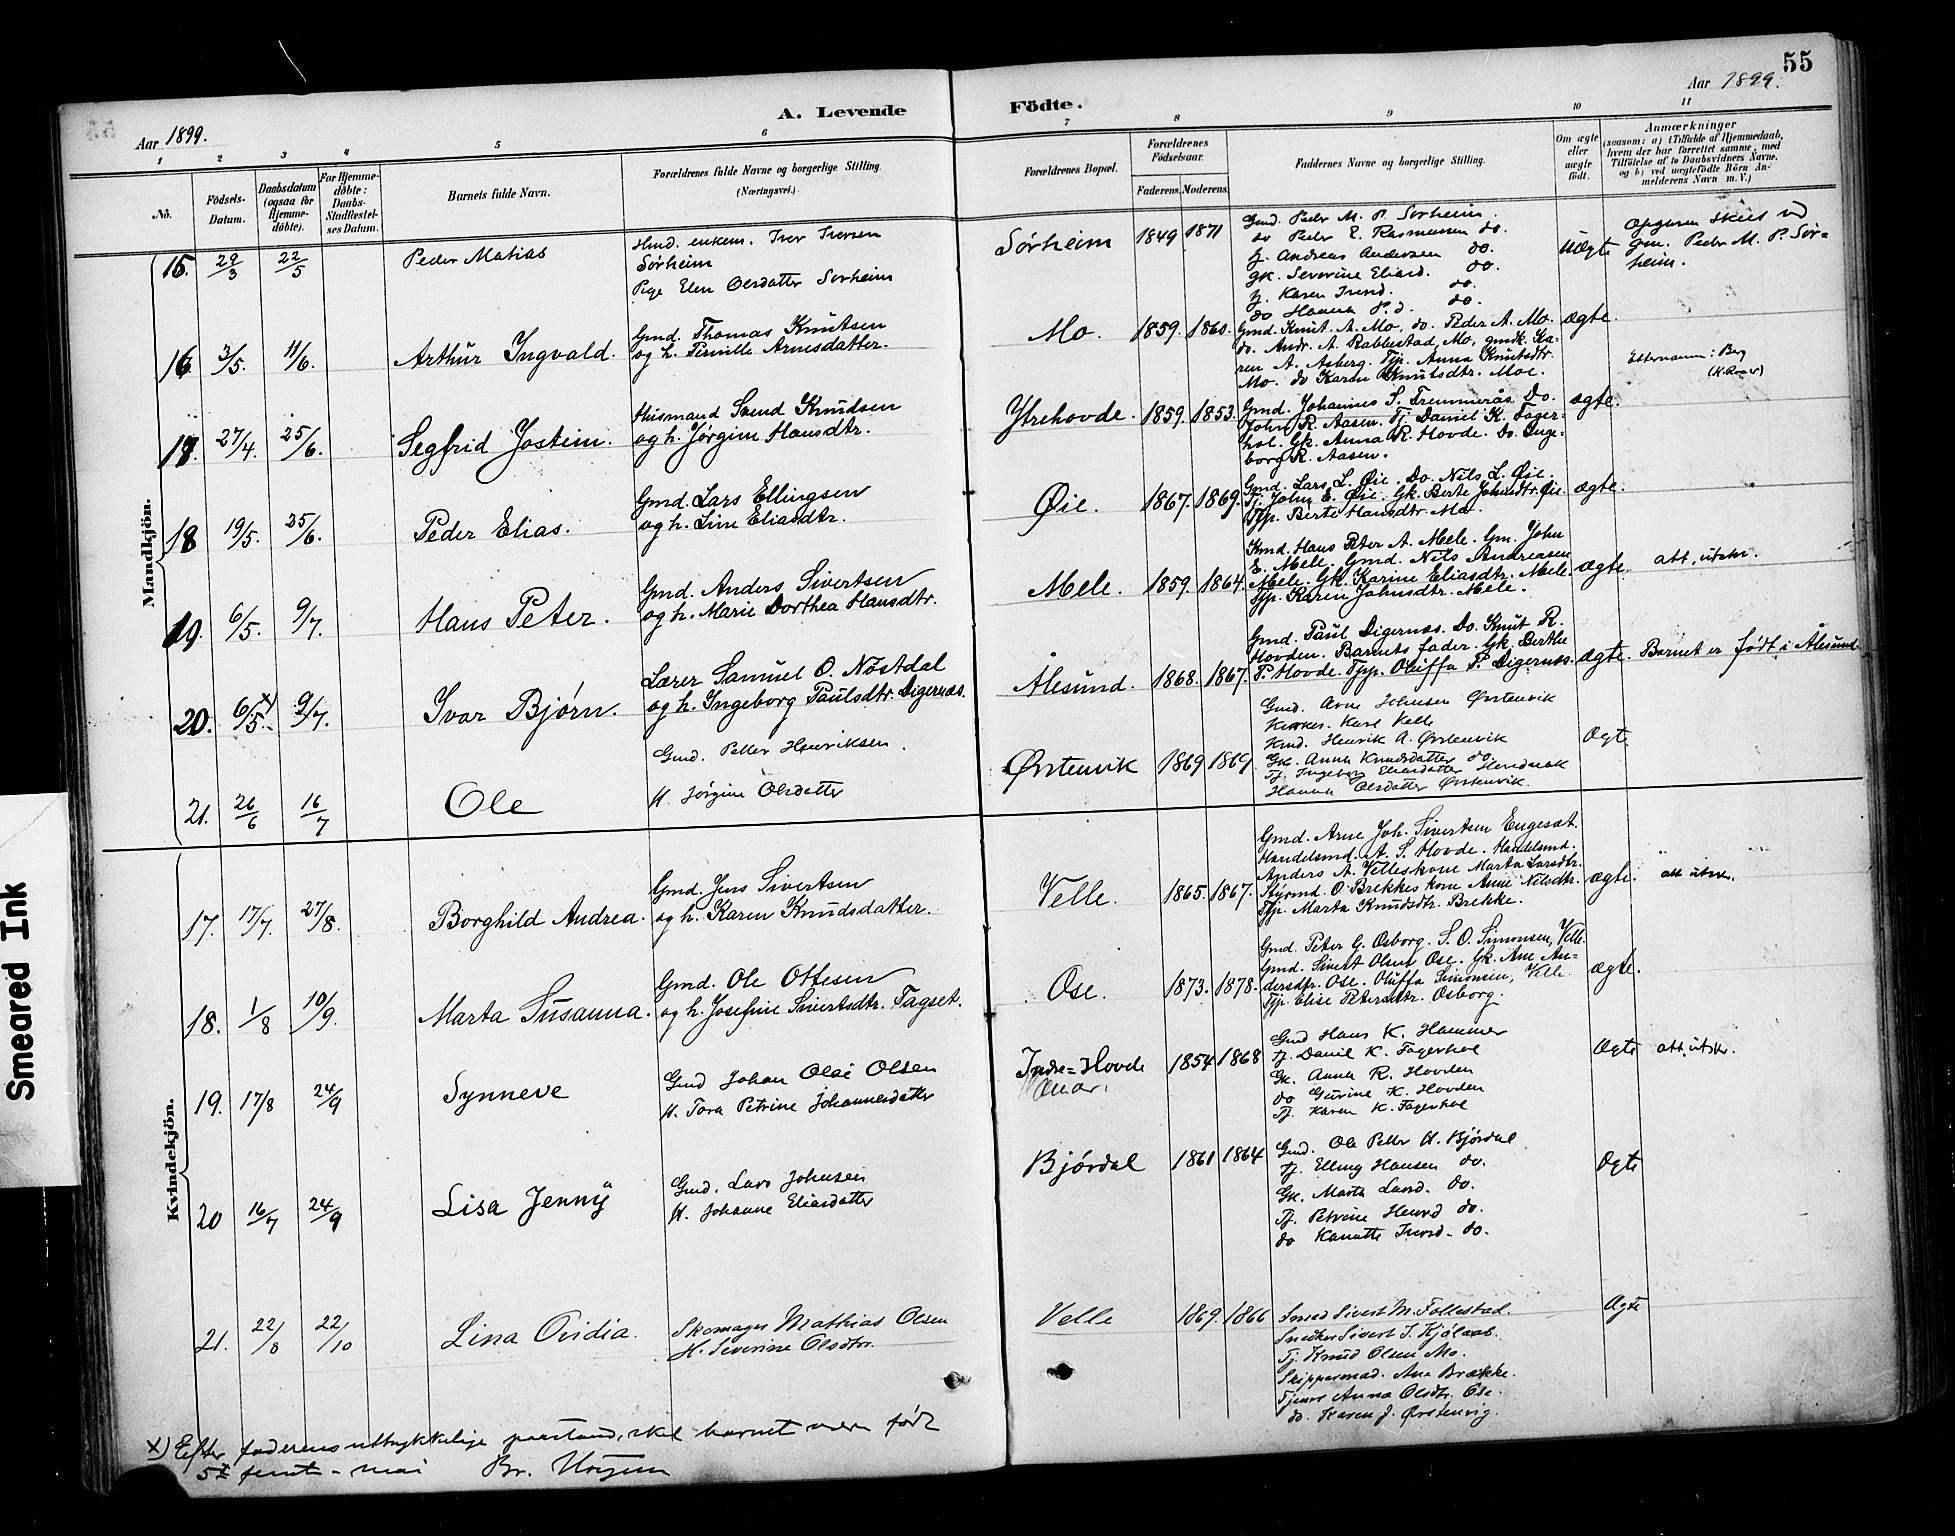 55
A. Levende Födte.
Aar 1899.
Aar 1899.
1 2 3 4 5 6 7 8 9 10 11
No.
Födsels-Datum.
Daabsdatum (ogsaa for Hjemme-döbte).
For Hjemme-döbte: Daabs-Stadfestel-ses Datum.
Barnets fulde Navn.
Forældrenes fulde Navne og borgerlige Stilling.
(Næringsvei.)
Forældrenes Bopæl.
Forældrenes Födselsaar.
Faderens. Moderens.
Faddernes Navne og borgerlige Stilling.
Om ægte eller uægte födt.
Anmærkninger
(saasom: a) i Tilfælde af Hjemmedaab, hvem der har forrettet samme, med Tilföielse af to Daabsvidners Navne, og b) ved uægtefödte Börn An-melderens Navn m. V.)
Mandkjön.
15. 29/3 22/5 Peder Matias
Hmd. enkem. Iver Iversen
Sørheim
Pige Elen Olsdatter Sørheim
Sørheim 1849 1871
Gmd. Peder M. P. Sørheim.
do Peder E. Rasmussen do.
Tj. Andreas Andersen do.
Gk. Severine Eliasd. do.
Tj. Karen Iversd. do.
do Hanna P.d. do.
Uægte
Opgiven skeet ved
gm. Peder M. P. Sør=
heim.
16. 3/5. 11/6. Arthur Ingvald.
Gmd. Thomas Knutsen
og h. Pernille Arnesdatter.
Mo. 1859. 1860.
Gmd. Knut A. Mo, do. Peder A. Mo.
do. Andr. A. Rabbestad, Mo, gmdk. Ka-
ren A. Aaberg. Tjp. Anna Knutsdtr.
Mo. do Karen Knutsdtr. Moe.
ægte.
Efternavn: Berg
17. 27/4. 25/6. Segfrid Jostein.
Husmand Svend Knudsen
og h. Jørgine Hansdtr.
Ytrehovde. 1859. 1853.
Gmd. Johannes S. Tremmerås. Do.
John R. Aasen. Tj. Daniel K. Fager-
hol. Gk. Anna R. Hovde. Do. Inge-
borg R. Aasen.
ægte.
18 19/5. 25/6. Peder Elias.
Gmd. Lars Ellingsen
og h. Line Eliasdtr.
Øie. 1867. 1869.
Gmd. Lars L. Øie. Do. Nils L. Øie.
Tj. John E. Øie. Gk. Berte Johnsdtr. Øie
Tjp. Berte Hansdtr. Mo.
ægte.
19. 6/5. 9/7. Hans Peter.
Gmd. Anders Sivertsen
og h. Marie Dorthea Hansdtr.
Mele. 1859. 1864.
Kmd. Hans Peter A. Mele. Gm. John
E. Mele. Gmd. Nils Andreasen
Mele. Gk. Karine Eliasdtr. Mele.
Tjp. Karen Johnsdtr. Mele.
ægte.
att. utskr.
20. 6/5. x) 9/7. Ivar Bjørn.
Lærer Samuel O. Nøstdal
og h. Ingeborg Paulsdtr. Digernæs.
Ålesund. 1868. 1867.
Gmd. Paul Digernæs. Do. Knut R.
Hovden. Barnets fader. Gk. Berthe
P. Hovde. Tjp. Oluffa P. Digernæs.
ægte. Barnet er født i Ålesund
21. 26/6 16/7 Ole
Gmd. Petter Henriksen.
H. Jørgine Olsdatter
Ørstenvik 1869 1869.
Gmd. Arne Johnsen Ørstenvik
Kirkes. Karl Velle
Kmd. Henrik A. Ørstenvik
Gk. Anna Knudsdatter do
Tj. Ingeborg Eliasdatter
Hanna Olsdatter Ørstenvik.
Ægt.
Kvindekjön.
17. 17/7. 27/8. Borghild Andrea.
Gmd. Jens Sivertsen
og h. Karen Knudsdatter.
Velle. 1865. 1867.
Gmd. Arne Joh. Sivertsen Engesæt.
Handelsmd. A. S. Hovde. Handelsmd.
Anders A. Velleskone Marta Larsdtr.
Styrmd. O. Brekkes kone Anne Nilsdtr.
Tjp. Marta Knudsdtr. Brekke.
ægte. att. utskr.
18. 1/8 10/9. Marta Susanna.
Gmd. Ole Ottesen
og h. Josefine Sivertsdtr. Tagset.
Ose. 1873. 1878.
Gmd. Peter G. Osborg. S. O. Simonsen, Velle.
Gmd. Sivert Olsen Ose. Gk. Ane An-
dersdtr. Ose. Oluffa Simonsen, Velle.
Tjp. Elise Petersdtr. Osborg.
ægte.
19. 17/8 24/9 Synneve
Gmd Johan Olai Olsen
H. Tora Petrine Johannesdatter
Indre=Hovde 1854 1868
Gmd Hans K. Hammer
Tj. Daniel K. Fagerhol
Gk. Anna R. Hovden
do Gurine K. Hovden
Tj. Karen K. Fagerhol
Ægte att. utskr.
20 16/7 24/9 Lisa Jenny
Gmd. Lars Johnsen
H. Johanne Eliasdatter
Bjørdal 1861 1864
Gmd. Ole Petter H. Bjørdal
Tj. Elling Hansen do.
Gk. Marta Larsd. do.
Tj. Petrine Henrd do.
do Kanutte Iversd. do.
Ægte
21. 22/8 22/10 Lina Ovidia.
Skomager Mathias Olsen
H. Severine Olsdtr.
Velle 1869. 1866
Smed Sivert M. Follestad.
Snedker Sivert J. Kjølaas.
Tj. Knud Olsen Mo.
Skippersmad. Ane Brække.
Tjener Anna Olsdtr. Ose.
do. Karen J. Ørstenvig.
Ægte
x) Efter faderens uttrykkelige paastand, skal barnet være født
5te femte - mai
Smeared Ink